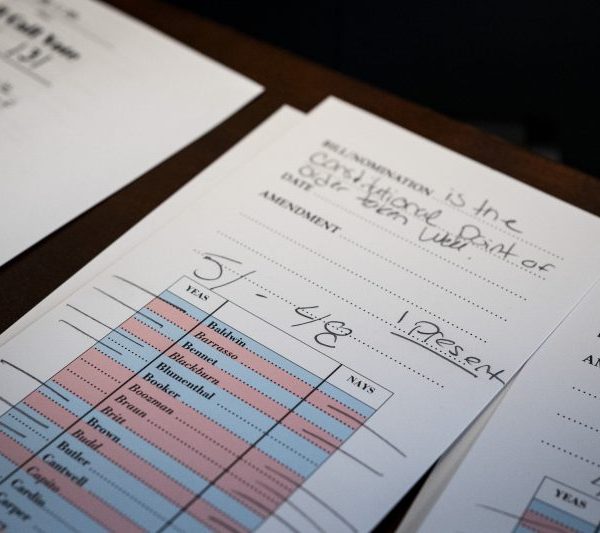 l Call Vote
131
BILL/NOMINATION is the
Constitutional Point of
DATE Order taken Well.
AMENDMENT
51 - 48 1 Present
YEAS NAYS
Baldwin
Barrasso
Bennet
Blackburn
Blumenthal
Booker
Boozman
Braun
Britt
Brown
Budd
Butler
Cantwell
Capito
Cardin
Carper
AM
YEAS